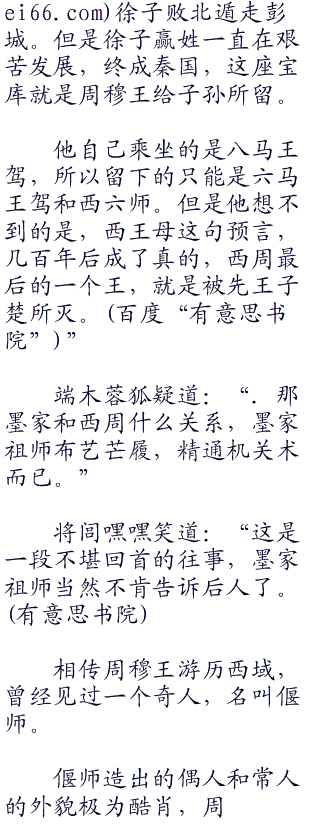 ei66.com)徐子败北遁走彭
城。但是徐子赢姓一直在艰
苦发展，终成秦国，这座宝
库就是周穆王给子孙所留。
他自己乘坐的是八马王
驾，所以留下的只能是六马
王驾和西六师。但是他想不
到的是，西王母这句预言，
几百年后成了真的，西周最
后的一个王，就是被先王子
楚所灭。(百度“有意思书
院”)”
端木蓉狐疑道：“．那
墨家和西周什么关系，墨家
祖师布艺芒履，精通机关术
而已。”
将闾嘿嘿笑道：“这是
一段不堪回首的往事，墨家
祖师当然不肯告诉后人了。
(有意思书院)
相传周穆王游历西域，
曾经见过一个奇人，名叫偃
师。
偃师造出的偶人和常人
的外貌极为酷肖，周